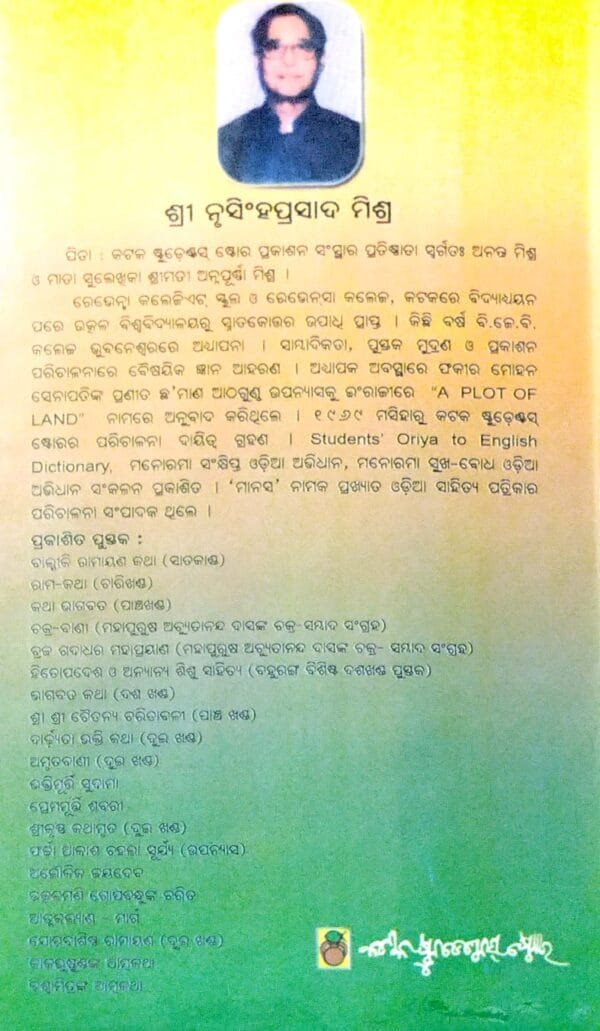 ଶ୍ରୀ ନୃସିଂହପ୍ରସାଦ ମିଶ୍ର
ପିତା : କଟକ ଷ୍ଟୁଡେଣ୍ଟସ୍ ଷ୍ଟୋର ପ୍ରକାଶନ ସଂସ୍ଥାର ପ୍ରତିଷ୍ଠାତା ସ୍ୱର୍ଗତଃ ଅନନ୍ତ ମିଶ୍ର
ଓ ମାତା ସୁଲେଖିକା ଶ୍ରୀମତୀ ଅନ୍ନପୂର୍ଣ୍ଣା ମିଶ୍ର ।
ରେଭେନ୍ସା କଲେଜିଏଟ୍ ସ୍କୁଲ ଓ ରେଭେନ୍ସା କଲେଜ, କଟକରେ ବିଦ୍ୟାଧ୍ୟୟନ
ପରେ ଉତ୍କଳ ବିଶ୍ୱବିଦ୍ୟାଳୟରୁ ସ୍ନାତକୋତ୍ତର ଉପାଧି ପ୍ରାପ୍ତ । କିଛି ବର୍ଷ ବି.ଜେ.ବି.
କଲେଜ ଭୁବନେଶ୍ୱରରେ ଅଧ୍ୟାପନା । ସାମ୍ବାଦିକତା, ପୁସ୍ତକ ମୁଦ୍ରଣ ଓ ପ୍ରକାଶନ
ପରିଚାଳନାରେ ବୈଷୟିକ ଜ୍ଞାନ ଆହରଣ । ଅଧ୍ୟାପକ ଅବସ୍ଥାରେ ଫକୀର ମୋହନ
ସେନାପତିଙ୍କ ପ୍ରଣୀତ ଛ'ମାଣ ଆଠଗୁଣ୍ଠ ଉପନ୍ୟାସକୁ ଇଂରାଜୀରେ "A PLOT OF
LAND" ନାମରେ ଅନୁବାଦ କରିଥିଲେ । ୧୯୬୯ ମସିହାରୁ କଟକ ଷ୍ଟୁଡେଣ୍ଟସ୍
ଷ୍ଟୋରର ପରିଚାଳନା ଦାୟିତ୍ୱ ଗ୍ରହଣ । Students' Oriya to English
Dictionary, ମନୋରମା ସଂକ୍ଷିପ୍ତ ଓଡ଼ିଆ ଅଭିଧାନ, ମନୋରମା ସୁଖ-ବୋଧ ଓଡ଼ିଆ
ଅଭିଧାନ ସଂକଳନ ପ୍ରକାଶିତ । 'ମାନସ' ନାମକ ପ୍ରଖ୍ୟାତ ଓଡ଼ିଆ ସାହିତ୍ୟ ପତ୍ରିକାର
ପରିଚାଳନା ସଂପାଦକ ଥିଲେ ।
ପ୍ରକାଶିତ ପୁସ୍ତକ :
ବାଲ୍ମୀକି ରାମାୟଣ କଥା (ସାତକାଣ୍ଡ)
ରାମ-କଥା (ଚାରିଖଣ୍ଡ)
କଥା ଭାଗବତ (ପାଞ୍ଚଖଣ୍ଡ)
ଚକ୍ର-ବାଣୀ (ମହାପୁରୁଷ ଅଚ୍ୟୁତାନନ୍ଦ ଦାସଙ୍କ ଚକ୍ର-ସମ୍ବାଦ ସଂଗ୍ରହ)
ଚକ୍ର ଗଦାଧର ମହାପ୍ରୟାଣ (ମହାପୁରୁଷ ଅଚ୍ୟୁତାନନ୍ଦ ଦାସଙ୍କ ଚକ୍ର- ସମ୍ବାଦ ସଂଗ୍ରହ)
ହିତୋପଦେଶ ଓ ଅନ୍ୟାନ୍ୟ ଶିଶୁ ସାହିତ୍ୟ (ବହୁରଙ୍ଗ ବିଶିଷ୍ଟ ଦଶଖଣ୍ଡ ପୁସ୍ତକ)
ଭାଗବତ କଥା (ଦଶ ଖଣ୍ଡ)
ଶ୍ରୀ ଶ୍ରୀ ଚୈତନ୍ୟ ଚରିତାବଳୀ (ପାଞ୍ଚ ଖଣ୍ଡ)
ଦାର୍ଢ଼୍ୟତା ଭକ୍ତି କଥା (ଦୁଇ ଖଣ୍ଡ)
ଅମୃତବାଣୀ (ଦୁଇ ଖଣ୍ଡ)
ଭକ୍ତିମୂର୍ତ୍ତି ସୁଦାମା
ପ୍ରେମମୂର୍ତ୍ତି ଶବରୀ
ଶ୍ରୀକୃଷ୍ଣ କଥାମୃତ (ଦୁଇ ଖଣ୍ଡ)
ଫର୍ଚ୍ଚା ଆକାଶ ଚହଲା ସୂର୍ଯ୍ୟ (ଉପନ୍ୟାସ)
ଅଲୌକିକ ଜୟଦେବ
ଉତ୍କଳମଣି ଗୋପବନ୍ଧୁଙ୍କ ଚରିତ
ଆତ୍ମକଲ୍ୟାଣ - ମାର୍ଗ
ଯୋଗବାଶିଷ୍ଠ ରାମାୟଣ (ଦୁଇ ଖଣ୍ଡ)
କାକଭୁଷୁଣ୍ଡଙ୍କ ଆତ୍ମକଥା
ବିଶ୍ୱାମିତ୍ରଙ୍କ ଆତ୍ମକଥା
ଷ୍ଟୁଡେଣ୍ଟସ୍ ଷ୍ଟୋର